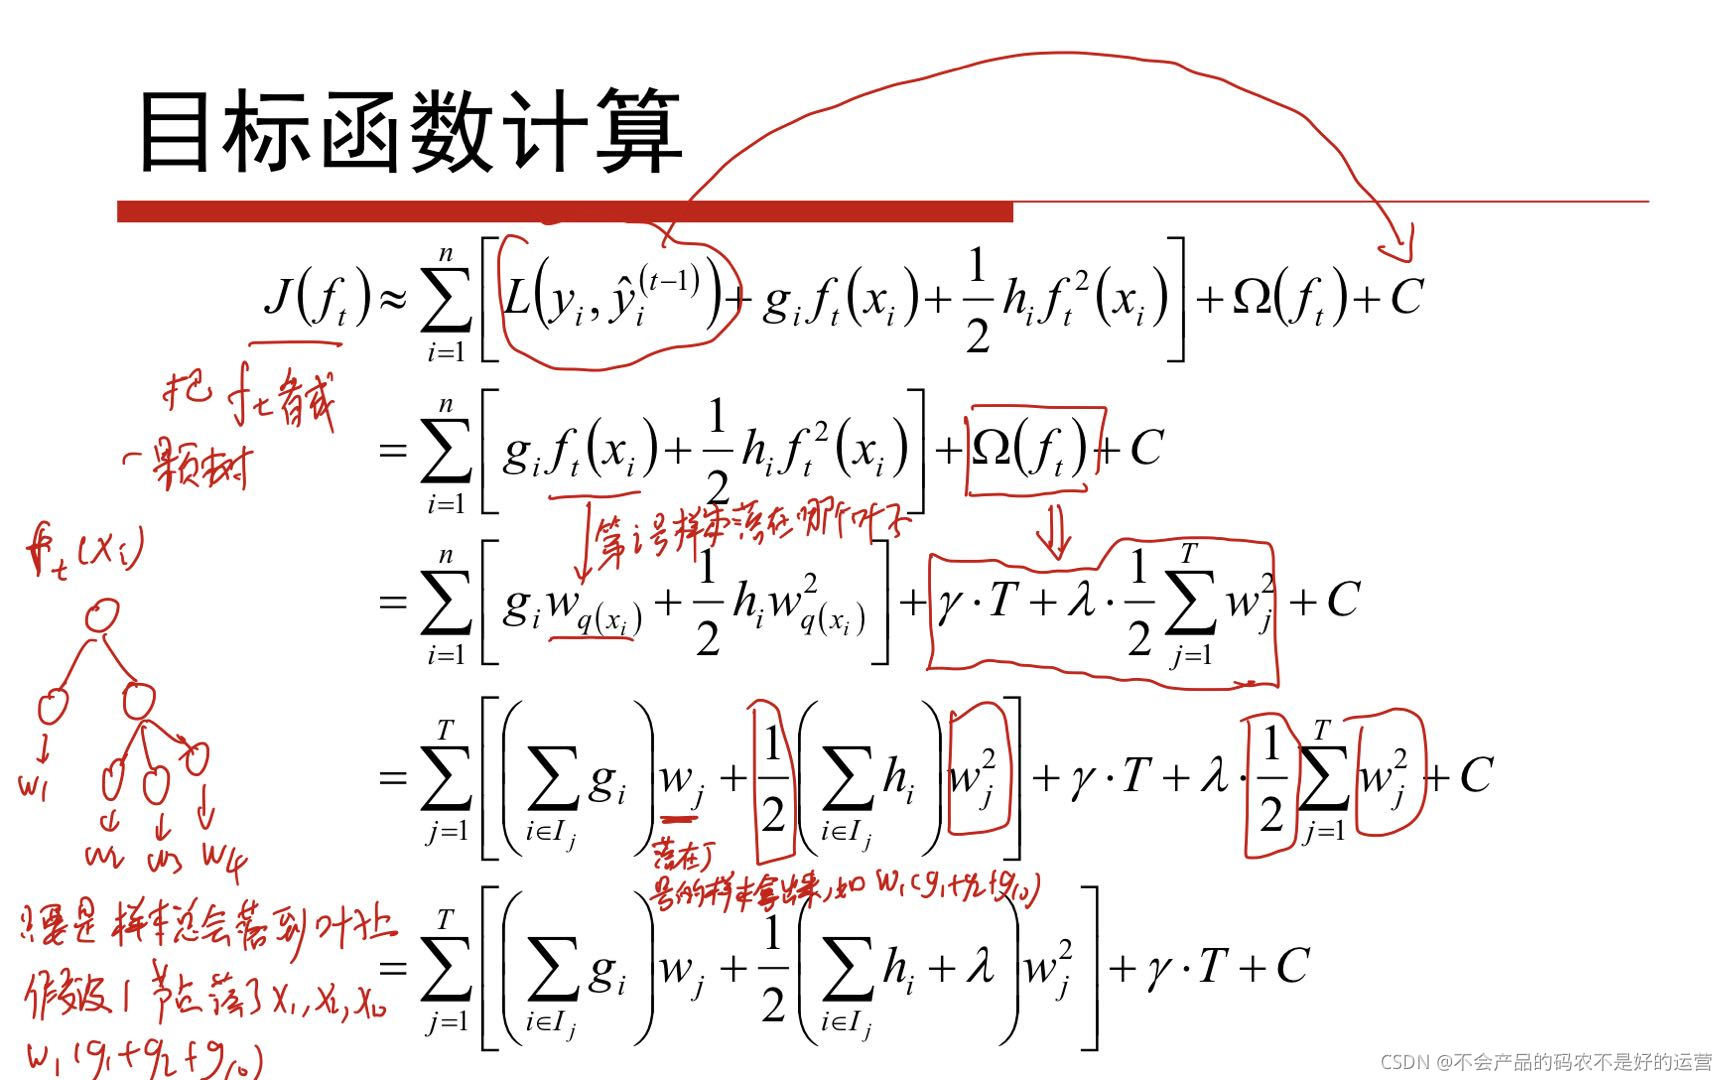 目标函数计算
J(f_t) ≈ \sum_{i=1}^{n} [ L(y_i, ŷ_i^{(t-1)}) + g_i f_t(x_i) + \frac{1}{2} h_i f_t^2(x_i) ] + Ω(f_t) + C
把 f_t 看成
一颗树
= \sum_{i=1}^{n} [ g_i f_t(x_i) + \frac{1}{2} h_i f_t^2(x_i) ] + Ω(f_t) + C
第i号样本落在哪个叶子
f_t(x_i)
= \sum_{i=1}^{n} [ g_i w_{q(x_i)} + \frac{1}{2} h_i w_{q(x_i)}^2 ] + γ·T + λ·\frac{1}{2} \sum_{j=1}^{T} w_j^2 + C
= \sum_{j=1}^{T} [ (\sum_{i∈I_j} g_i) w_j + \frac{1}{2} (\sum_{i∈I_j} h_i) w_j^2 ] + γ·T + λ·\frac{1}{2} \sum_{j=1}^{T} w_j^2 + C
w_1
w_2 w_3 w_4
落在J
号的样本拿出来,如 w_1(g_1+g_2+g_{10})
只要是样本总会落到叶子上
= \sum_{j=1}^{T} [ (\sum_{i∈I_j} g_i) w_j + \frac{1}{2} (\sum_{i∈I_j} h_i + λ) w_j^2 ] + γ·T + C
假设1节点落了x_1,x_2,x_{10}
w_1(g_1+g_2+g_{10})
CSDN @不会产品的码农不是好的运营